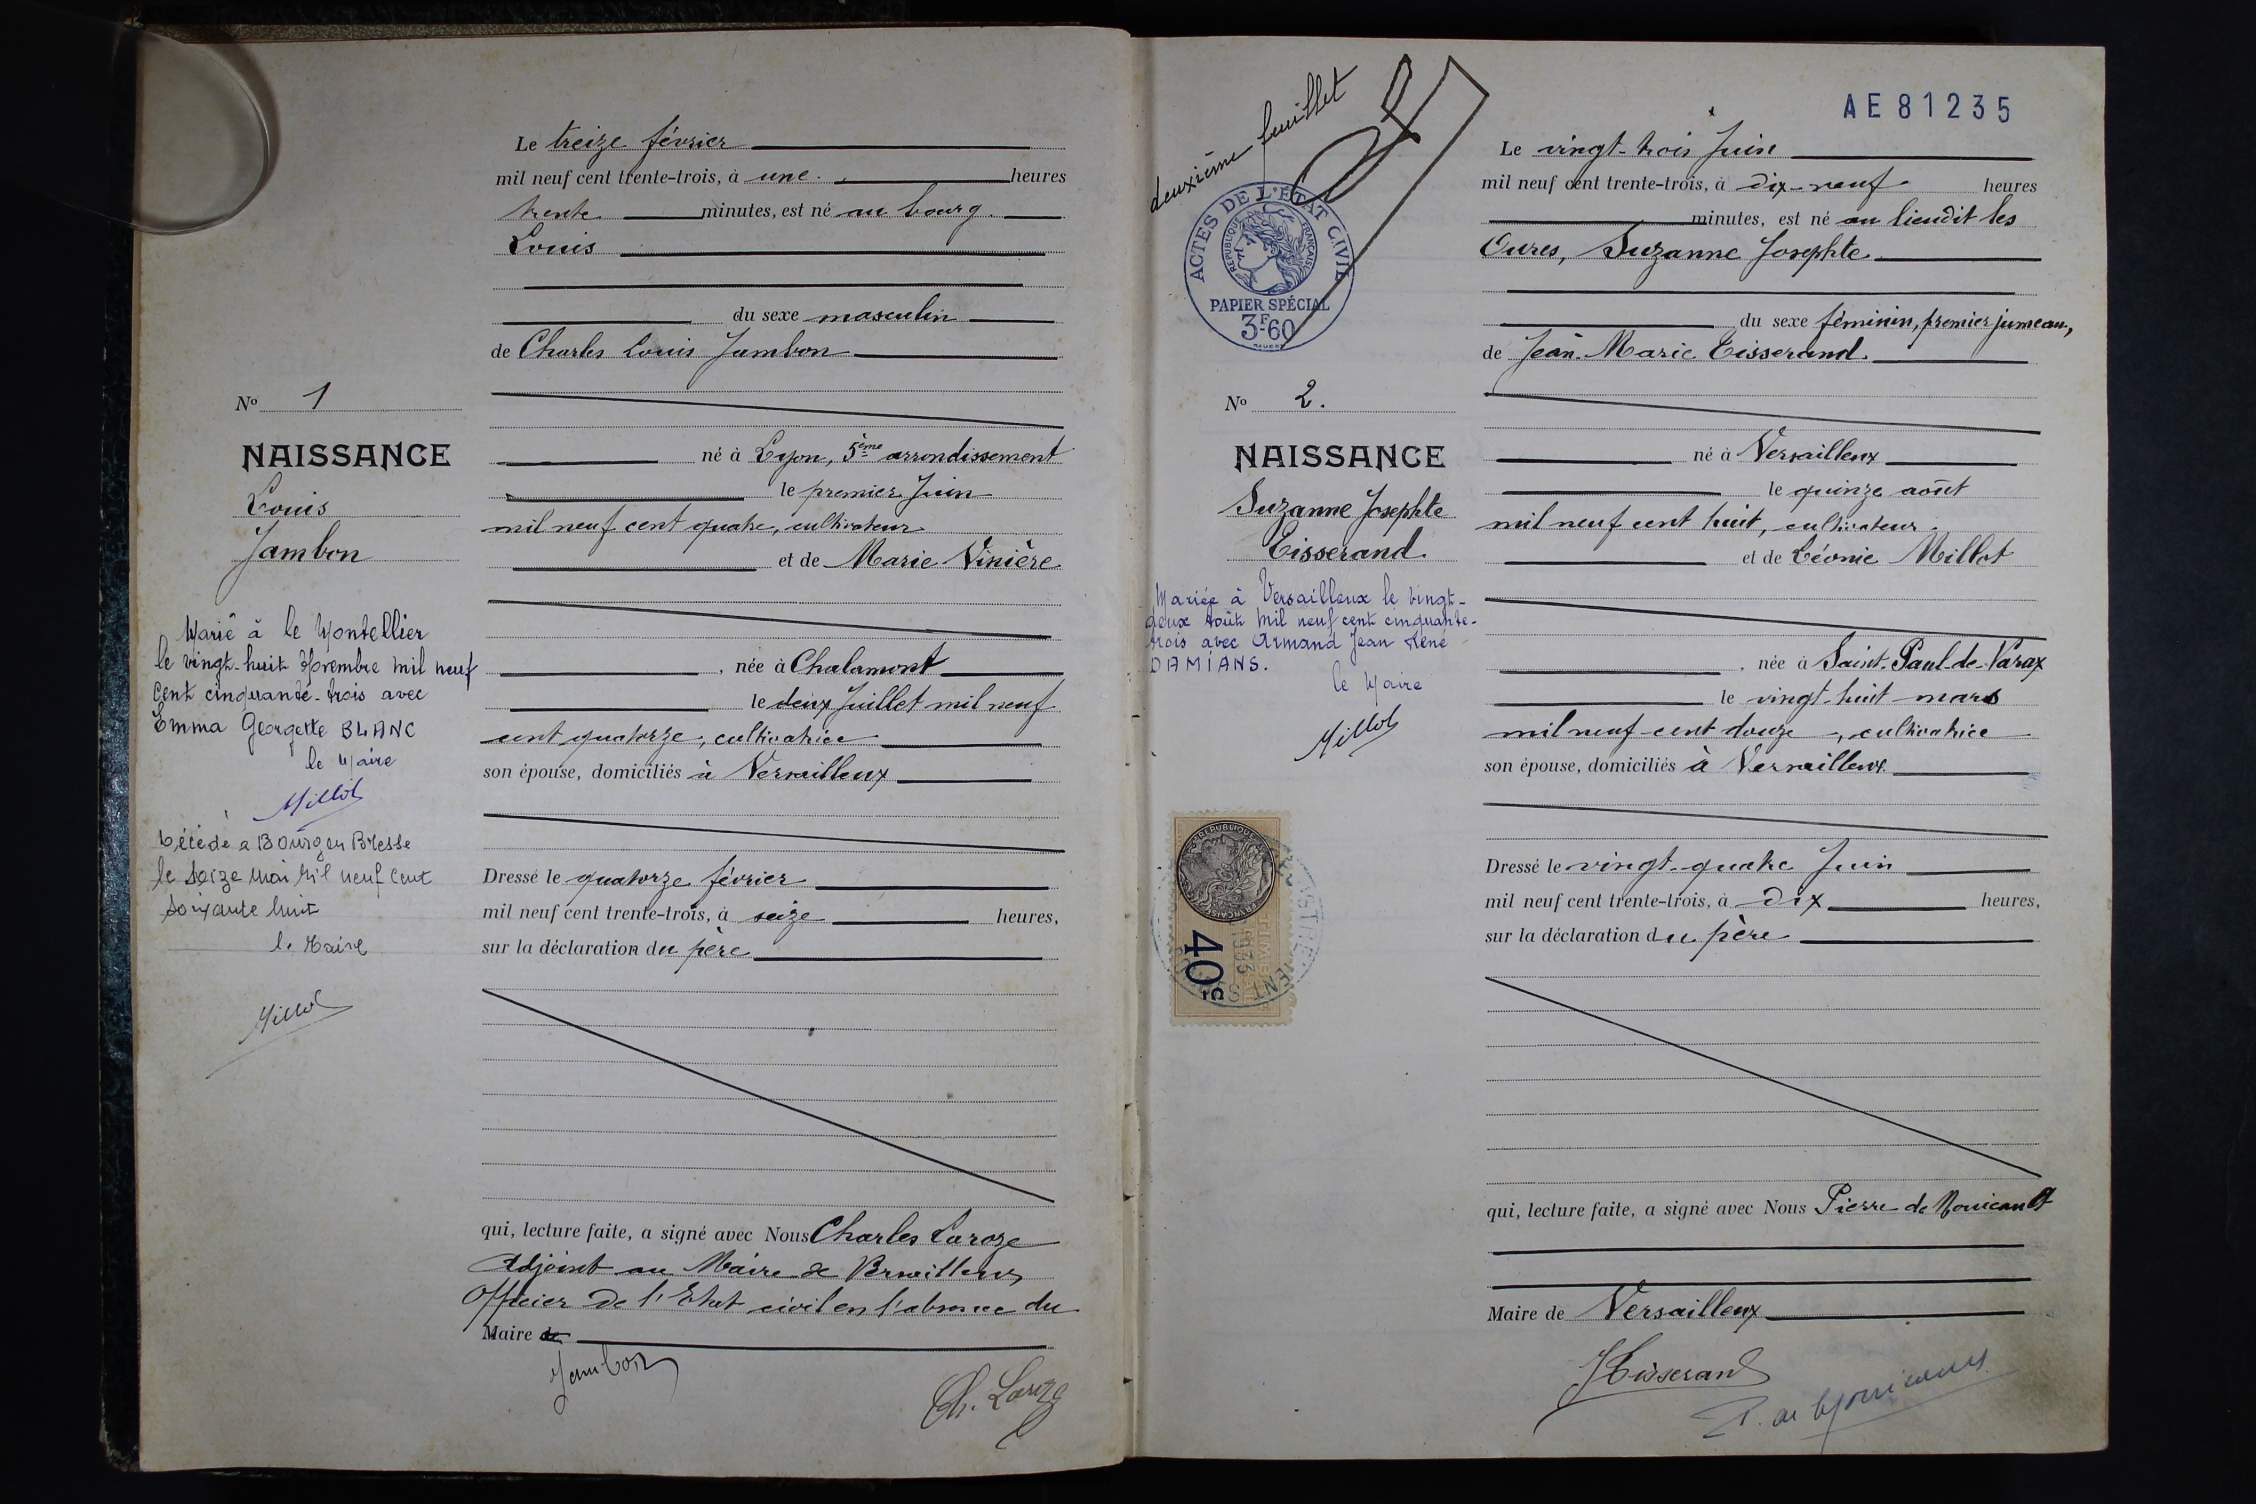 Le treize février
mil neuf cent trente-trois, à une heures
trente minutes, est né au bourg
Louis
du sexe masculin
de Charles Louis Jambon
né à Lyon, 5ème arrondissement
le premier Juin
mil neuf cent quatre, cultivateur
et de Marie Vinière
, née à Chalamont
le deux Juillet mil neuf
cent quatorze, cultivatrice
son épouse, domiciliés à Versailleux
Dressé le quatorze février
mil neuf cent trente-trois, à seize heures,
sur la déclaration du père
qui, lecture faite, a signé avec Nous Charles Laroze
Adjoint au Maire de Versailleux
Officier de l'Etat civil en l'absence du
Maire de
Jambon
Ch. Laroze
No 1
NAISSANCE
Louis
Jambon
Marié à le Montellier
le vingt-huit Novembre mil neuf
cent cinquante-trois avec
Emma Georgette BLANC
le Maire
Millot
Décédé a Bourg en Bresse
le seize Mai Mil neuf cent
soixante huit
le Maire
Millot
deuxième feuillet
ACTES DE L'ÉTAT CIVIL
RÉPUBLIQUE FRANÇAISE
PAPIER SPÉCIAL
3F60
No 2.
NAISSANCE
Suzanne Josephte
Tisserand.
Mariée à Versailleux le vingt-
deux Août mil neuf cent cinquante-
trois avec Armand Jean René
DAMIANS.
le Maire
Millot
RÉPUBLIQUE FRANÇAISE
40c
AE81235
Le vingt-trois Juin
mil neuf cent trente-trois, à dix-neuf heures
minutes, est né au lieudit les
Oures, Suzanne Josephte
du sexe féminin, premier jumeau,
de Jean-Marie Tisserand.
né à Versailleux
le quinze août
mil neuf cent huit, cultivateur.
et de Léonie Millot
, née à Saint-Paul-de-Varax
le vingt-huit mars
mil neuf cent douze, cultivatrice
son épouse, domiciliés à Versailleux
Dressé le vingt-quatre Juin
mil neuf cent trente-trois, à dix heures,
sur la déclaration du père
qui, lecture faite, a signé avec Nous Pierre de Monicault
Maire de Versailleux
JTisserand
P. de Monicault